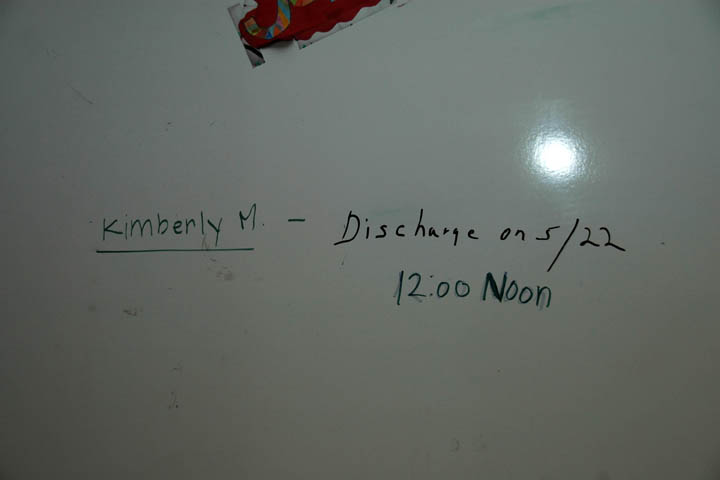 Kimberly M. - Discharge on 5/22
12:00 Noon